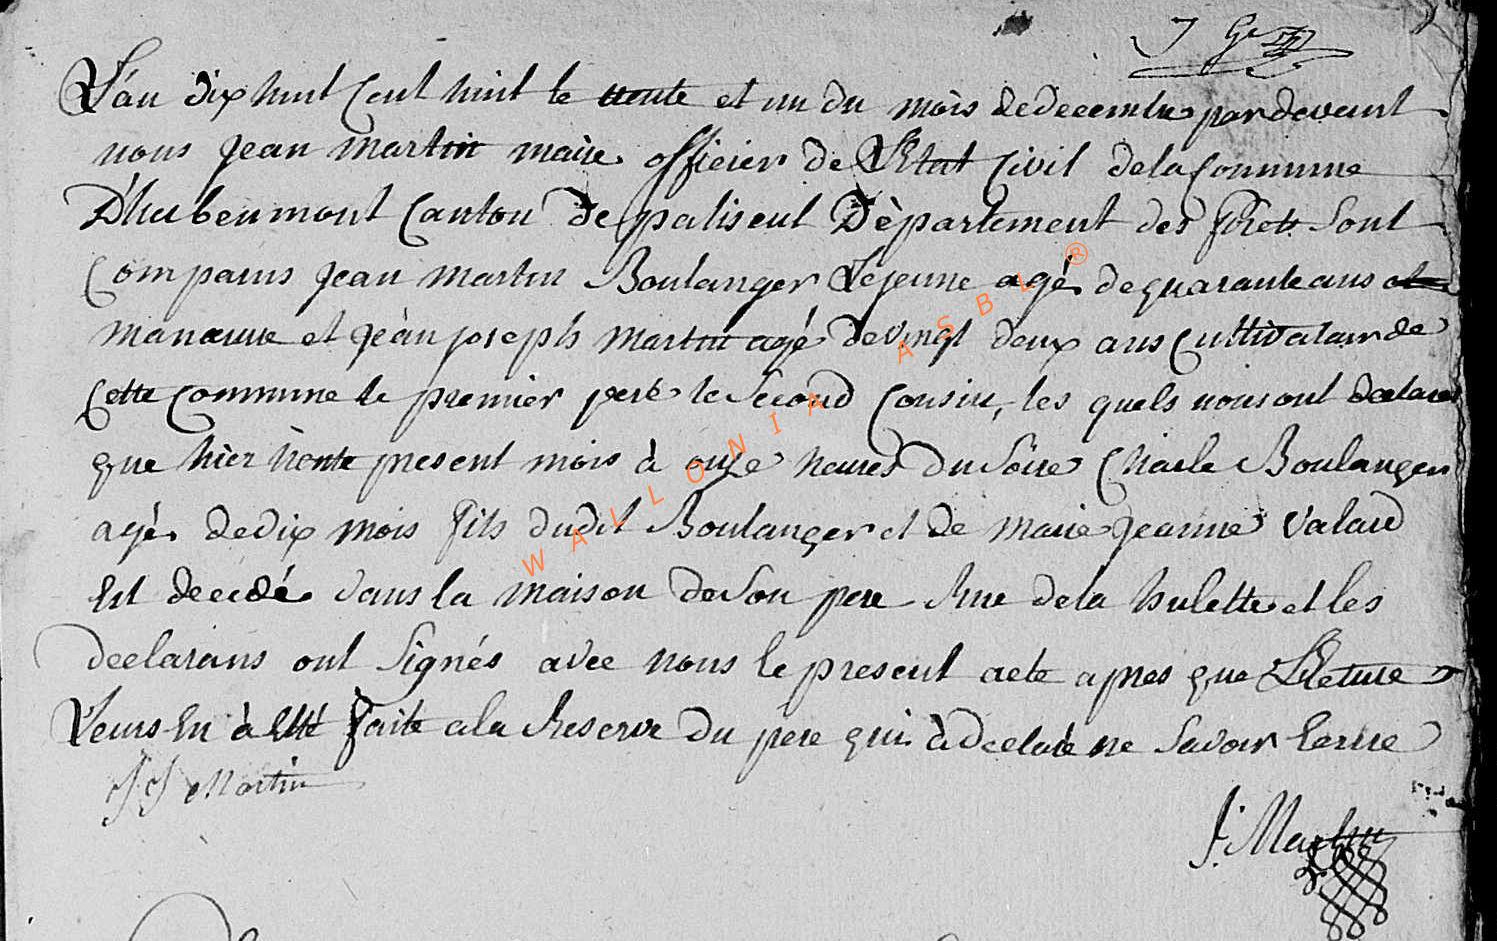 L'an dix huit Cent huit le trente et un du mois de decembre par devant
nous jean martin maire officier de L'Etat Civil de la Commune
D'herbeumont Canton de paliseul Département des forêts Sont
Comparus jean martin Boulanger Lejeune agé de quarante ans
manœuvre et jean joseph martin agé de vingt deux ans Cultivataur de
Cette Commune le premier pere le Second Cousin, les quels nous ont declarés
que hier trente present mois à onze heures du Soire Charle Boulanger
agé de dix mois fils dudit Boulanger et de marie jeanne Valard
Est decédé dans la maison de Son pere Rue de la hulette et les
declarans ont Signés avec nous le present acte apres que Lecture
Leurs En à Eté faite a la Reserve du pere qui à declaré ne Savoir Ecrire
JJ Martin
J. Martin
WALLONIA ASBL ®